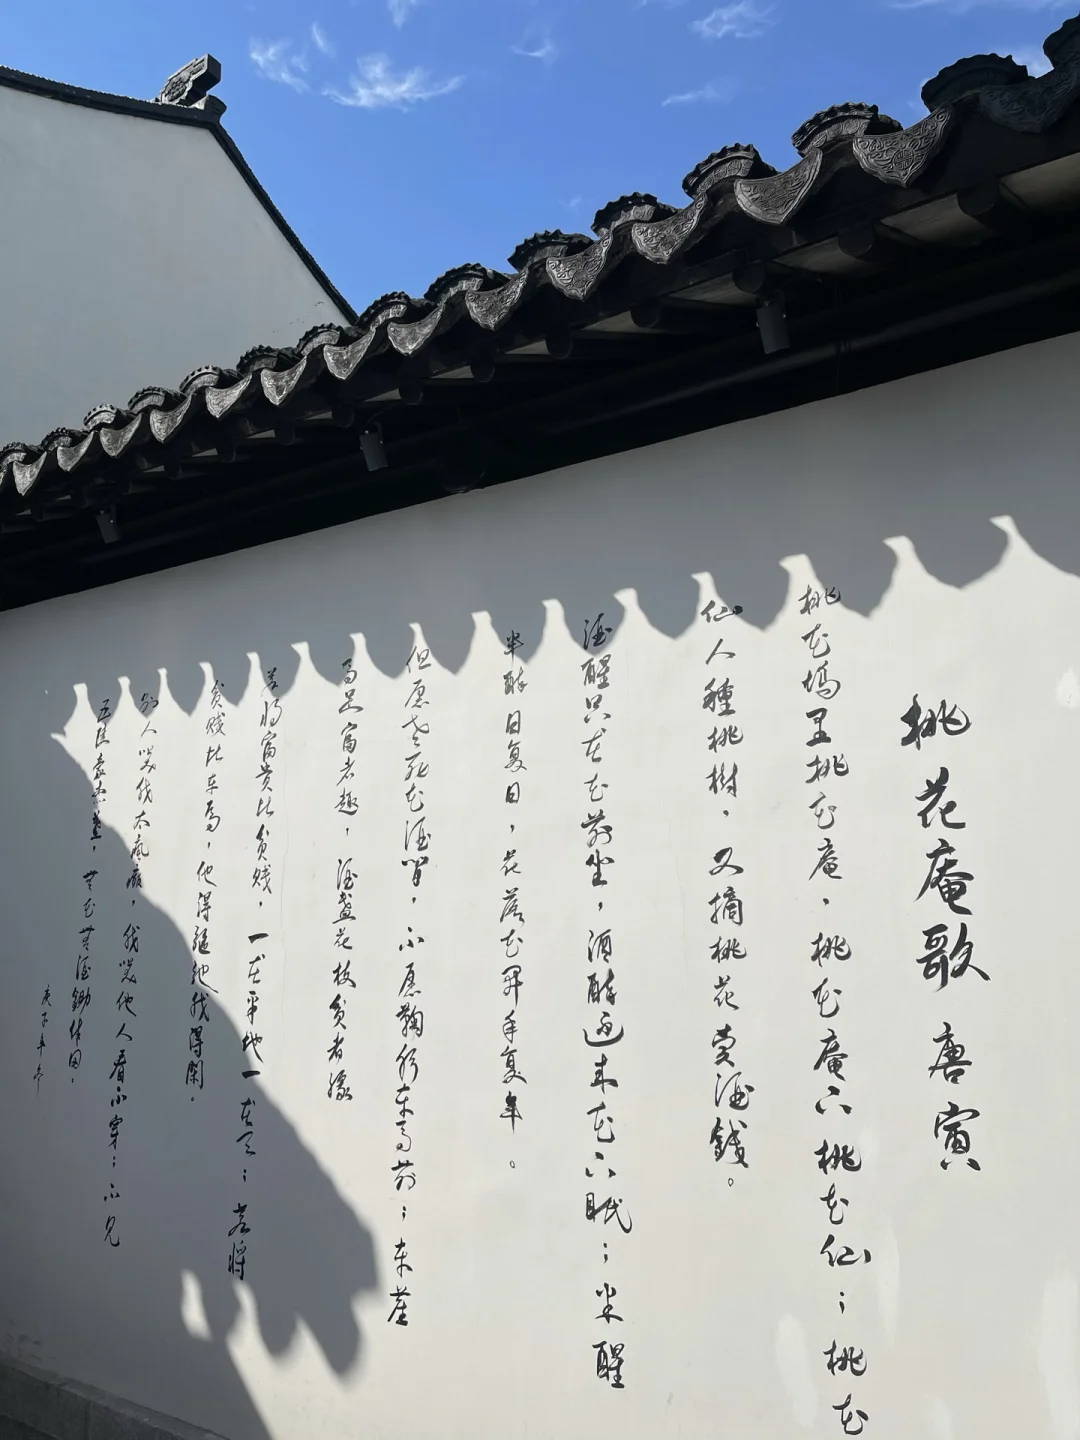 桃花庵歌 唐寅
桃花坞里桃花庵，桃花庵下桃花仙；桃花
仙人種桃樹，又摘桃花賣酒錢。
酒醒只在花前坐，酒醉还来花下眠；半醒
半醉日复日，花落花开年复年。
但愿老死花酒间，不愿鞠躬车马前；车尘
马足富者趣，酒盏花枝贫者缘
若将富贵比贫贱，一在平地一在天；若将
贫贱比车马，他得驱驰我得閑。
别人笑我太疯癫，我笑他人看不穿；不见
五陵豪杰墓，無花無酒鋤作田。
庚子年冬